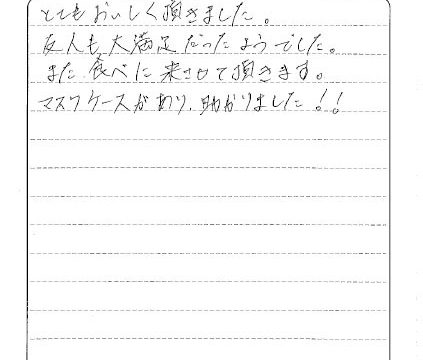 とてもおいしく頂きました。
友人も大満足だったようでした。
また食べに来させて頂きます。
マスクケースがあり、助かりました!!